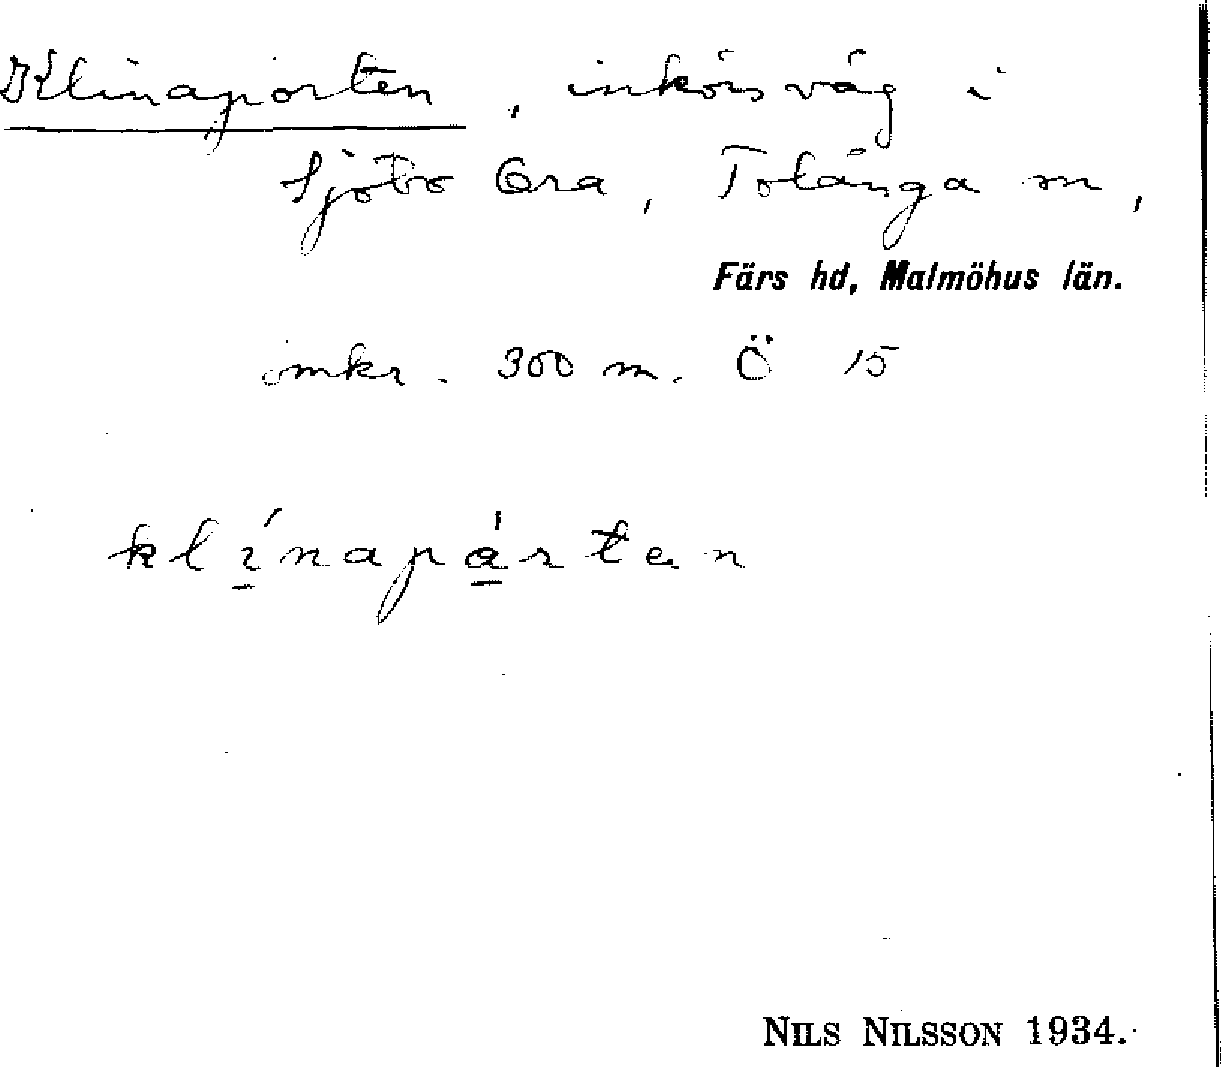 Klinaporten, inkörsväg i
Sjöbo Ora, Tolånga sn,
Färs hd, Malmöhus län.
omkr. 300 m. Ö 15
klínapárten
NILS NILSSON 1934.